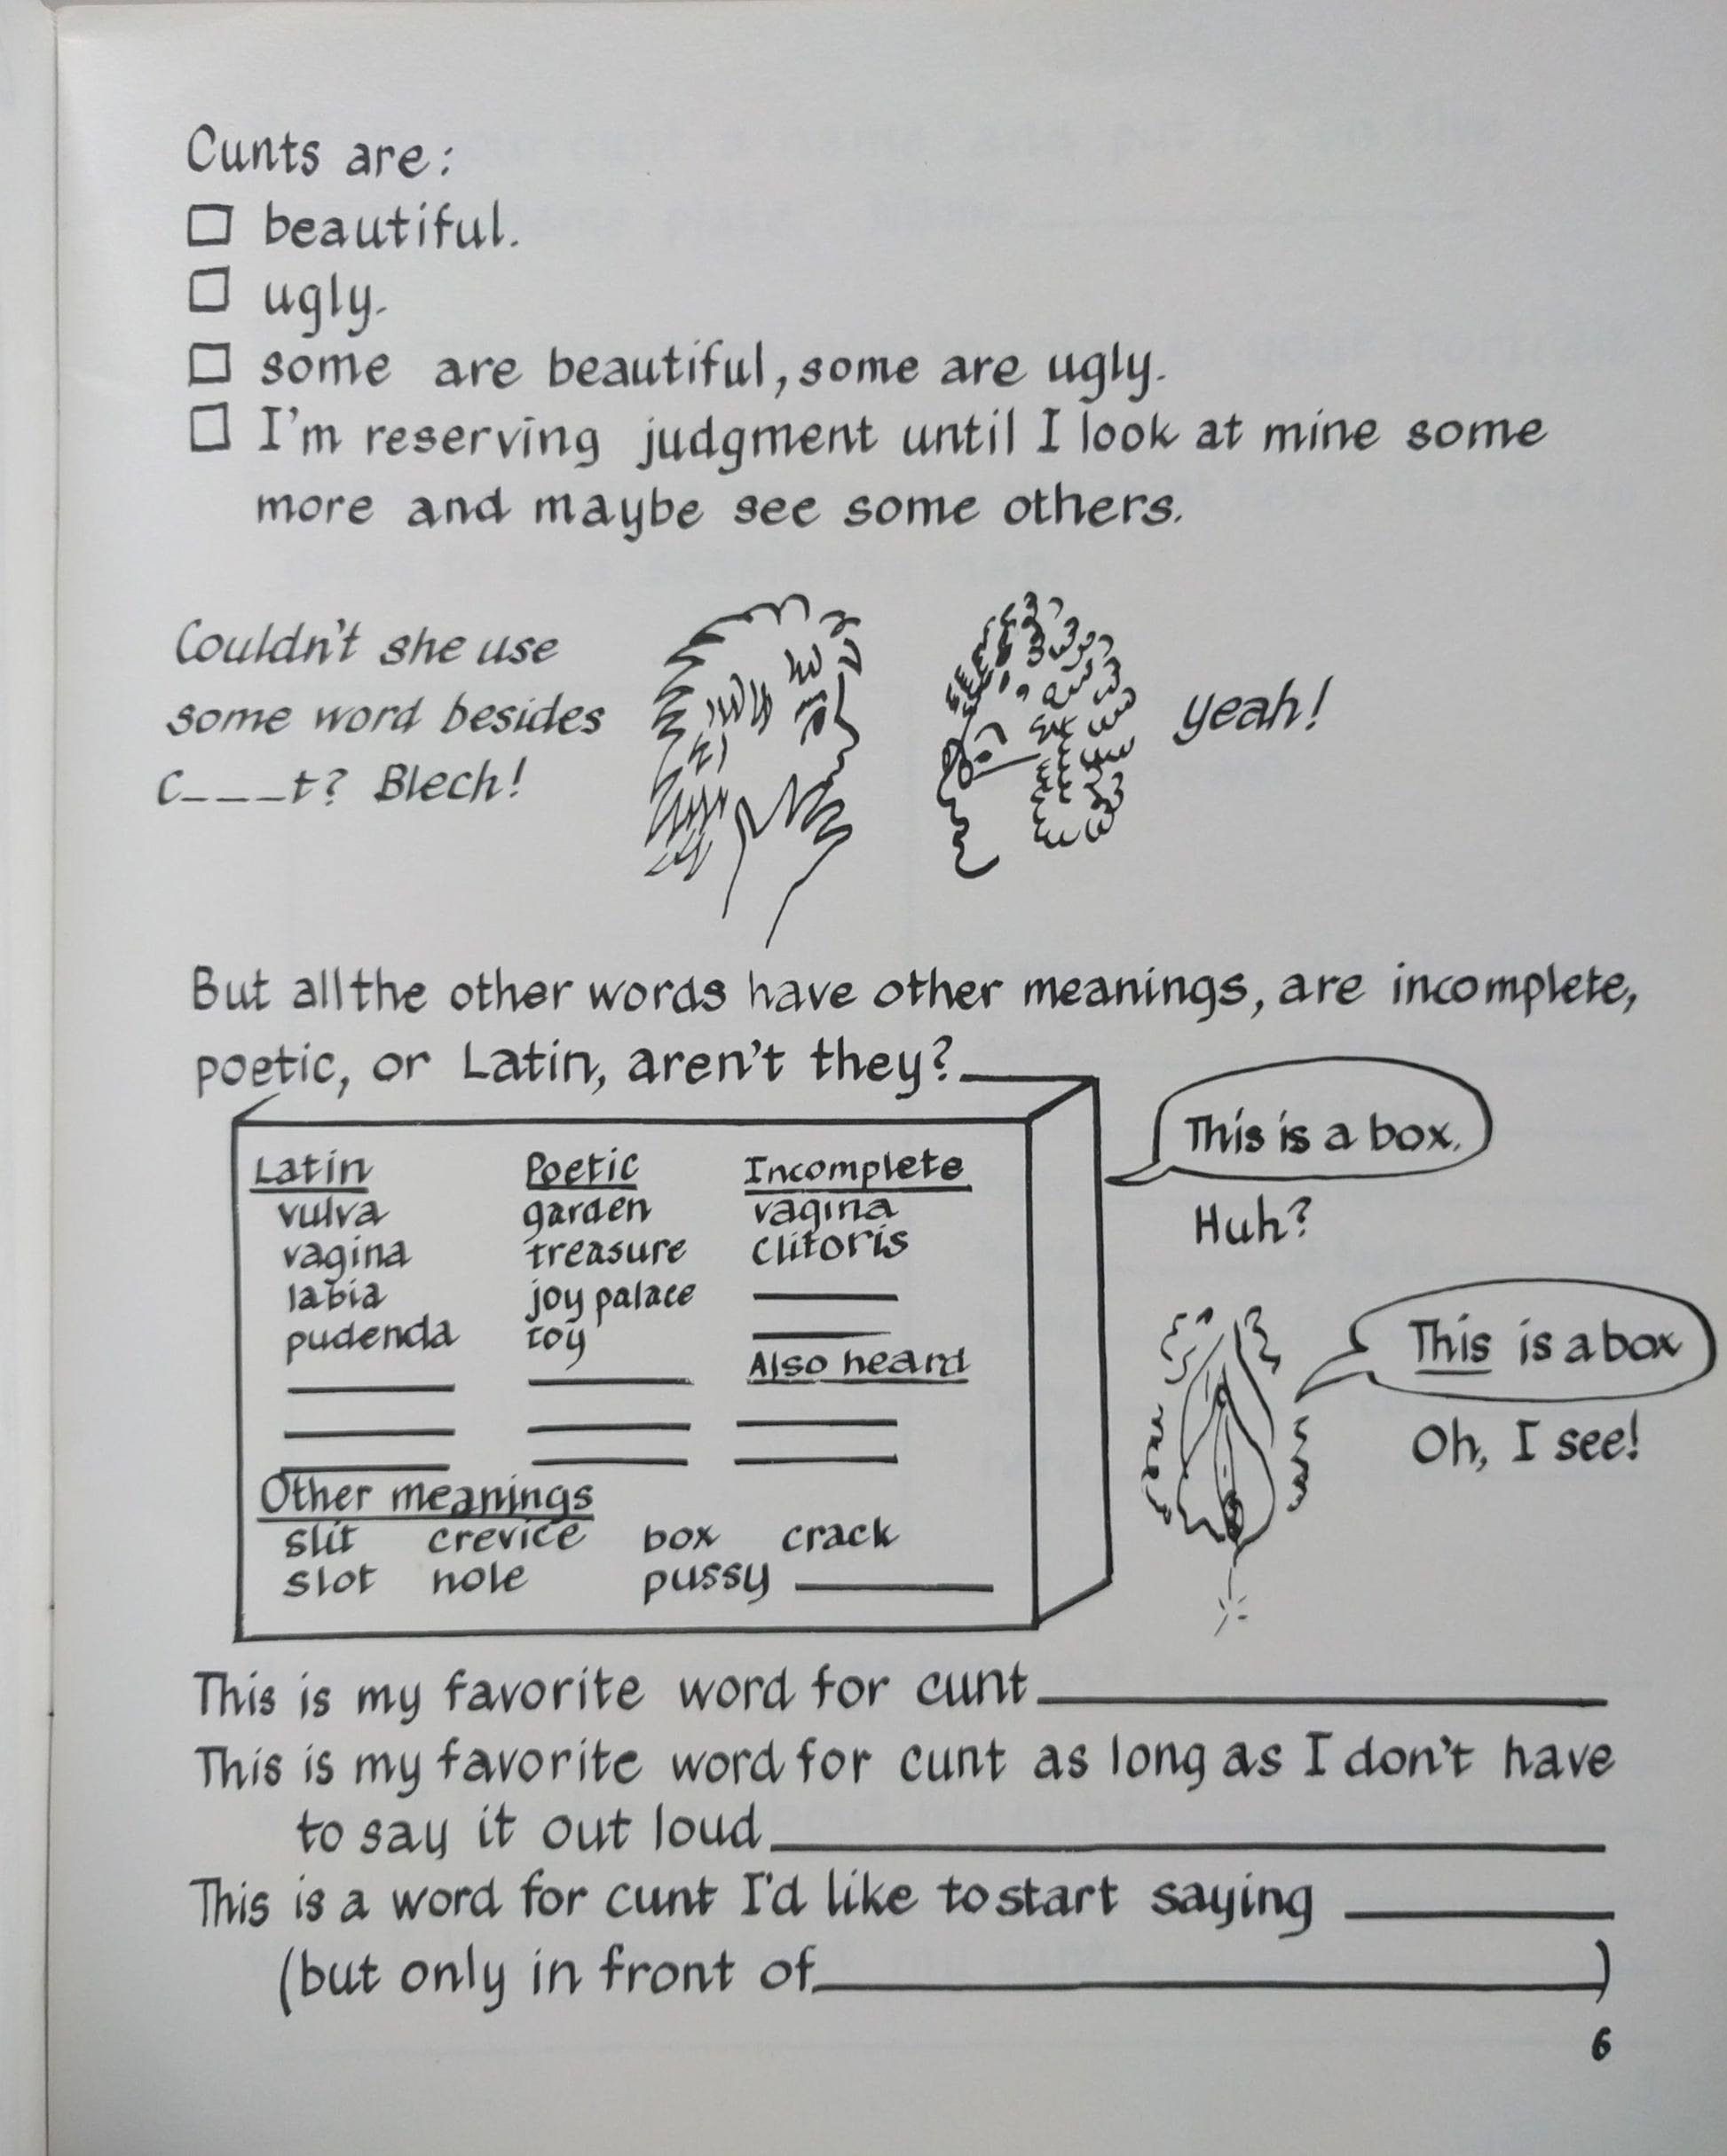 Cunts are:
□ beautiful.
□ ugly.
□ some are beautiful, some are ugly.
□ I'm reserving judgment until I look at mine some
more and maybe see some others.
Couldn't she use
some word besides
C____t? Blech!
yeah!
But all the other words have other meanings, are incomplete,
poetic, or Latin, aren't they?
This is a box.
Huh?
Latin
vulva
vagina
labia
pudenda
Poetic
garden
treasure
joy palace
toy
Incomplete
vagina
clitoris
Also heard
Other meanings
slit crevice box crack
slot hole pussy
This is a box
Oh, I see!
This is my favorite word for cunt
This is my favorite word for cunt as long as I don't have
to say it out loud
This is a word for cunt I'd like to start saying
(but only in front of )
6